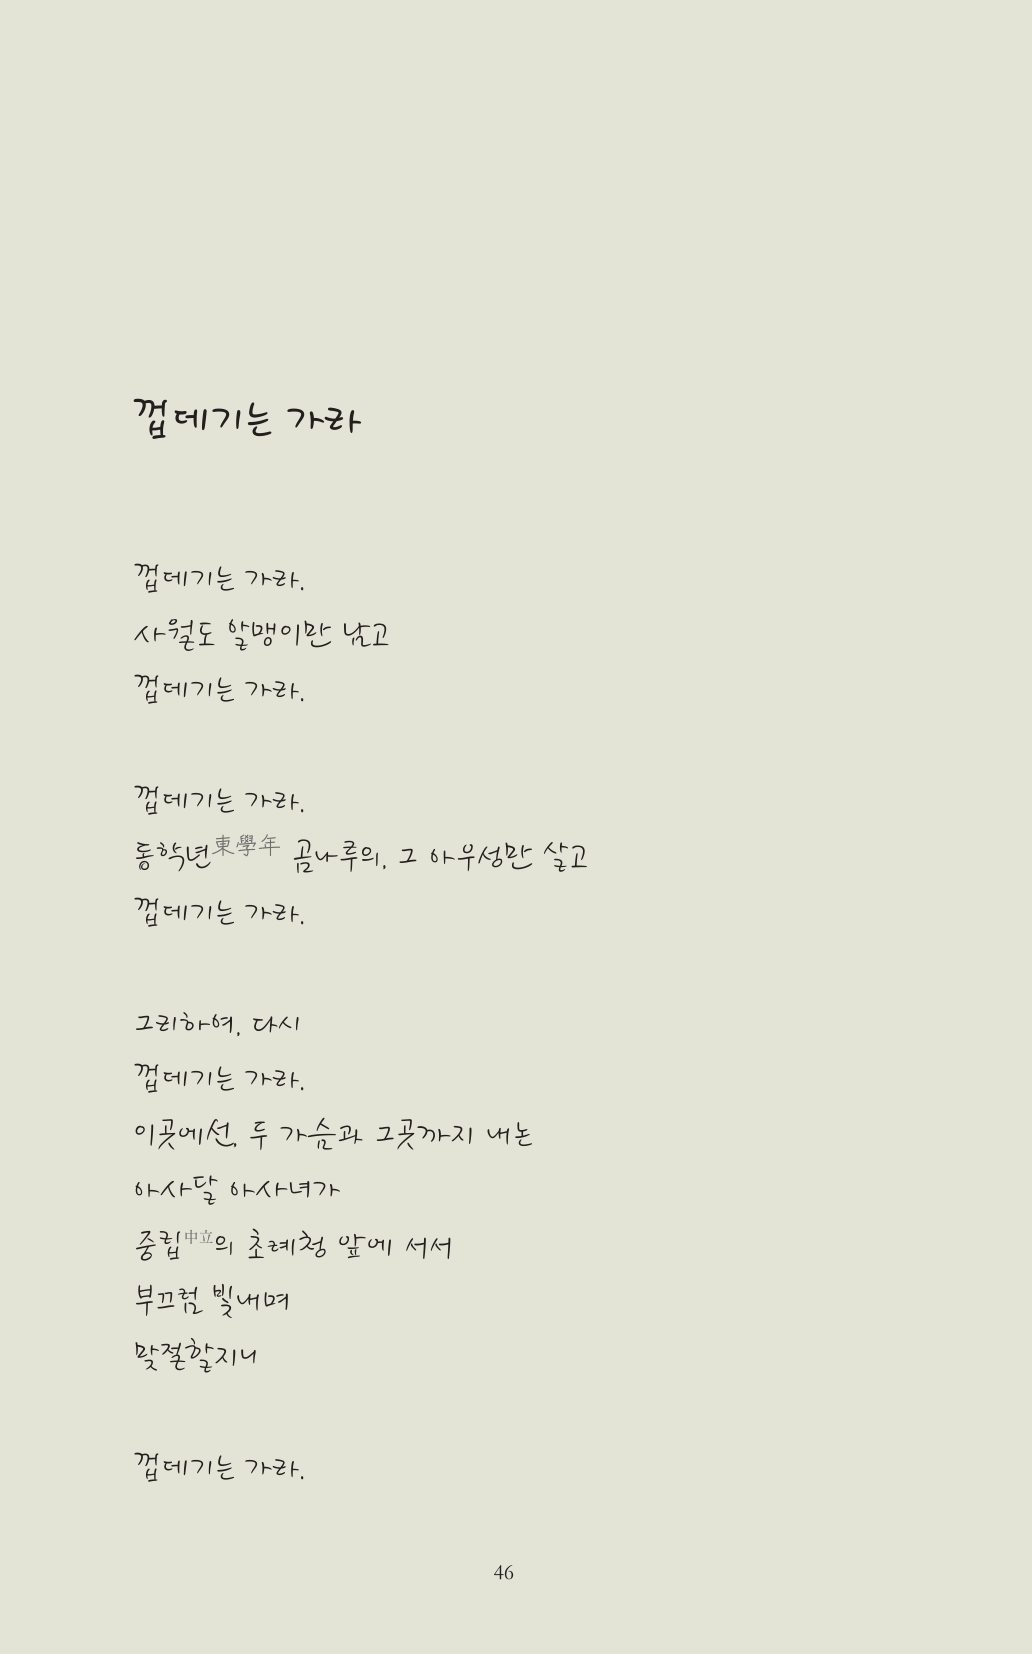 껍데기는 가라
껍데기는 가라.
사월도 알맹이만 남고
껍데기는 가라.
껍데기는 가라.
동학년東學年 곰나루의, 그 아우성만 살고
껍데기는 가라.
그리하여, 다시
껍데기는 가라.
이곳에선, 두 가슴과 그곳까지 내논
아사달 아사녀가
중립中立의 초례청 앞에 서서
부끄럼 빛내며
맞절할지니
껍데기는 가라.
46